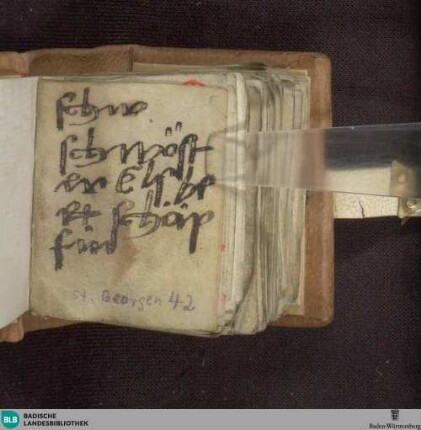 schw
schwöst
er Elsbe
tt schäp
fin
St. Georgen 42
BLB
BADISCHE
LANDESBIBLIOTHEK
Baden-Württemberg